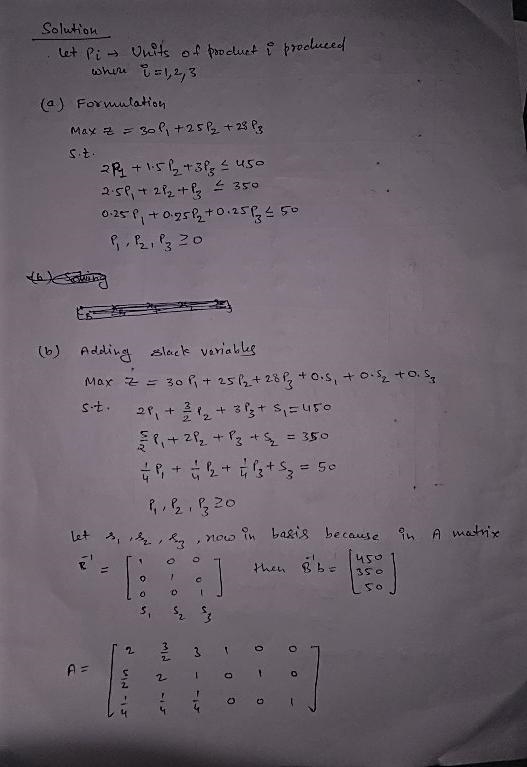 Solution
Let Pi → Units of product i produced
where i = 1, 2, 3
(a) Formulation
Max Z = 30P₁ + 25P₂ + 28P₃
s.t.
2P₁ + 1.5P₂ + 3P₃ ≤ 450
2.5P₁ + 2P₂ + P₃ ≤ 350
0.25P₁ + 0.25P₂ + 0.25P₃ ≤ 50
P₁, P₂, P₃ ≥ 0
(b) Solving
(b) Adding slack variables
Max Z = 30P₁ + 25P₂ + 28P₃ + 0.S₁ + 0.S₂ + 0.S₃
s.t. 2P₁ + 3/2 P₂ + 3P₃ + S₁ = 450
5/2 P₁ + 2P₂ + P₃ + S₂ = 350
1/4 P₁ + 1/4 P₂ + 1/4 P₃ + S₃ = 50
P₁, P₂, P₃ ≥ 0
Let s₁, s₂, s₃, now in basis because in A matrix
B⁻¹ = [1 0 0 then B⁻¹b = [450
0 1 0 350
0 0 1] 50]
S₁ S₂ S₃
A = [2 3/2 3 1 0 0
5/2 2 1 0 1 0
1/4 1/4 1/4 0 0 1]